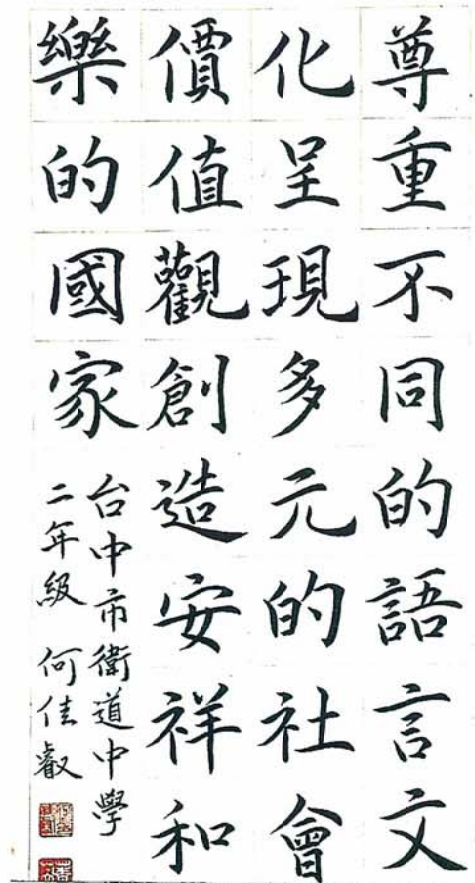 尊重不同的語言文
化呈現多元的社會
價值觀創造安祥和
樂的國家
台中市衛道中學
二年級 何佳叡